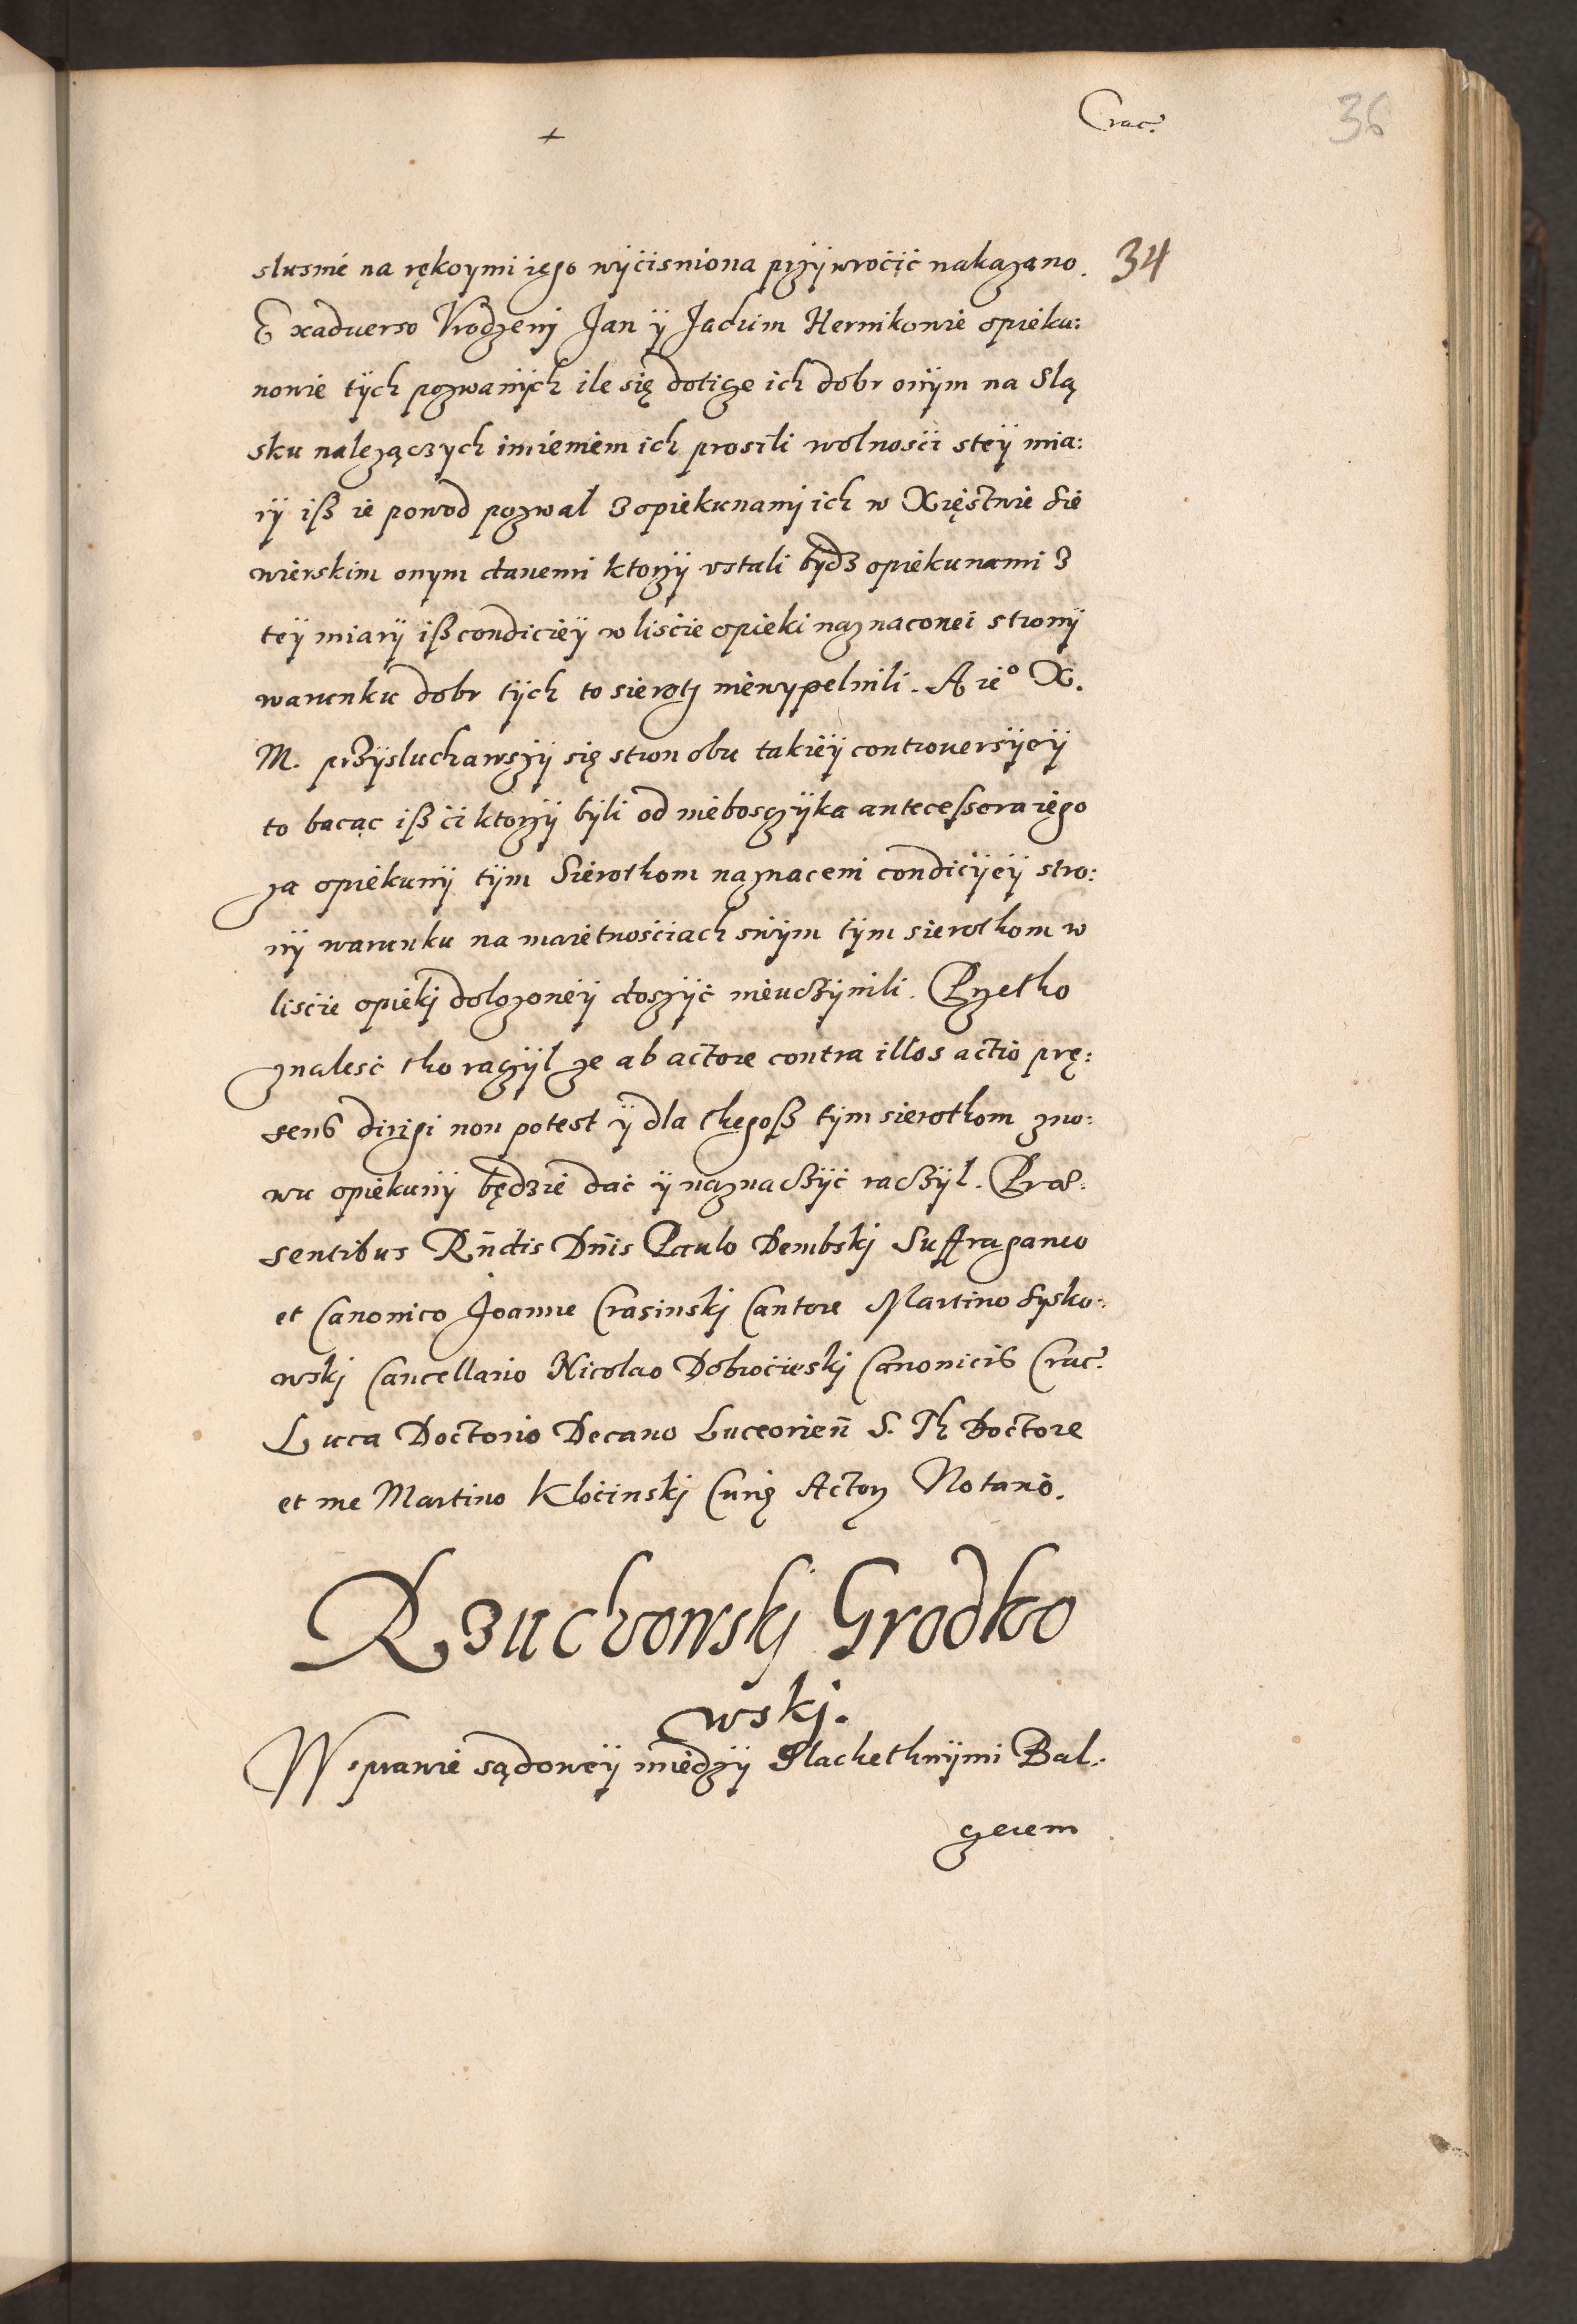 Crac.
36
34
slusnie na rękoymi iego wyćisniona przywroćić nakazano.
Exaduerso Vrodzeni Jan ÿ Jachim Hernikowie opieku:
nowie tÿch pozwanÿch ile się doticze ich dobr onÿm na Slą
sku nalezączych imieniem ich prosili wolnosći steÿ mia:
rÿ iß ie powod pozwal z opiekunami ich w Xięstwie Sie
wierskim onym danemi ktorzÿ vstali bÿdz opiekunami z
teÿ miarÿ iß condicieÿ w lisćie opieki naznaconei stronÿ
warunku dobr tÿch to sierotz niewypelnili. A ie° X.
M. przÿsluchawszÿ się stron obu takieÿ controuersÿeÿ
to bacąc iß ći ktorzÿ bÿli od nieboszczÿka antecessora iego
za opiekunÿ tÿm Sierothom naznaceni condicÿeÿ stro:
nÿ warunku na maietnosćiach swÿm tÿm sierothom w
lisćie opieki dolozoneÿ doszÿć nieuczÿnili. Przetho
znalesć tho raczÿl ze ab actore contra illos actio prę:
sens dirigi non potest ÿ dla thegoß tÿm sierothom zno:
wu opiekunÿ będzie dać ÿ naznaczÿć raczÿl. Præ:
sentibus Rndis Dnis Paulo Dembskj Suffraganeo
et Canonico Joanne Crasinskj Cantore Martino Sysko:
wskj Cancellario Nicolao Dobroćieskj Canonicis Crac.
Luca Doctorio Decano Luceorien S. Th Doctore
et me Martino Kloćinskj Curię Actor Notario.
Rzuchowskj Grodko
wskj.
W sprawie sądoweÿ miedzÿ Slachethnÿmi Bal:
zerem